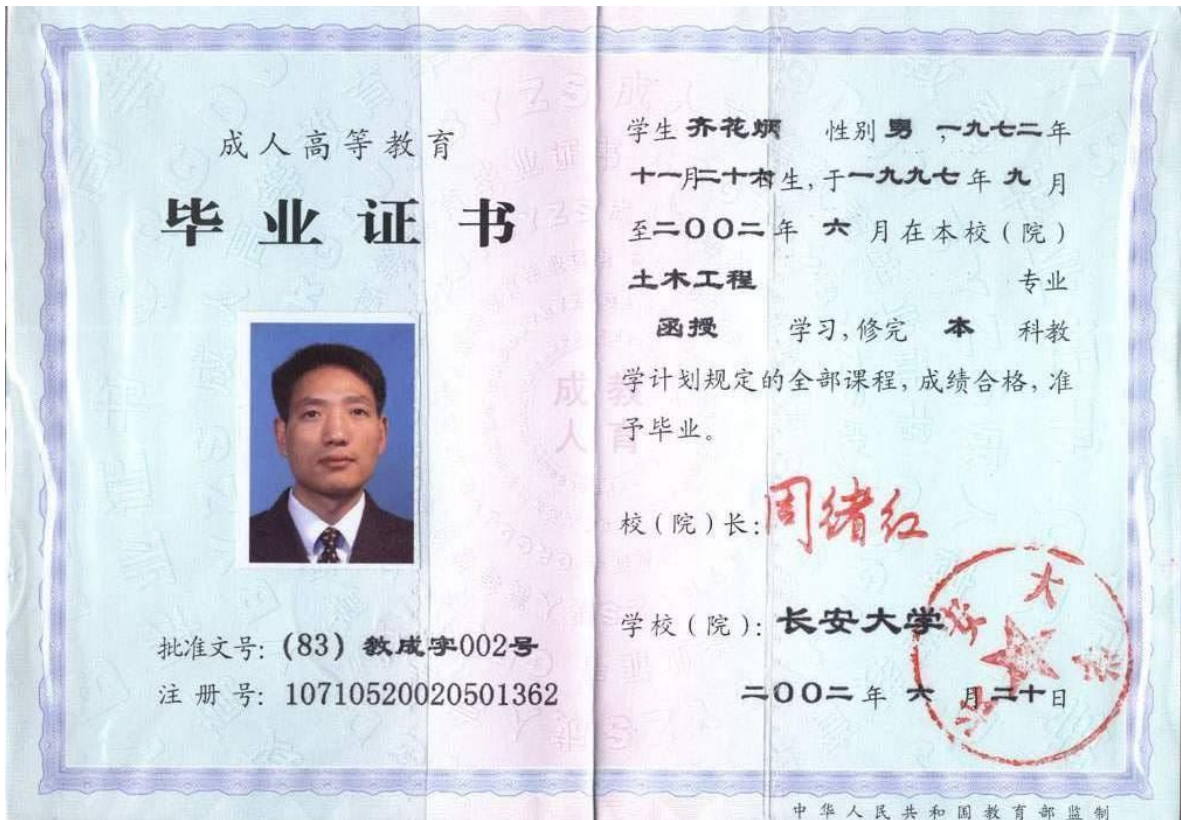 成人高等教育
毕业证书
批准文号: (83) 教成字002号
注册号: 107105200205013​62
学生 齐花炳 性别 男 ,一九七二年
十一月二十 生,于一九九七年 九 月
至二00二年 六 月在本校(院)
土木工程 专业
函授 学习,修完 本 科教
学计划规定的全部课程,成绩合格,准
予毕业。
校(院)长: 周绪红
学校(院): 长安大学
二00二年 六 月二十日
中华人民共和国教育部监制